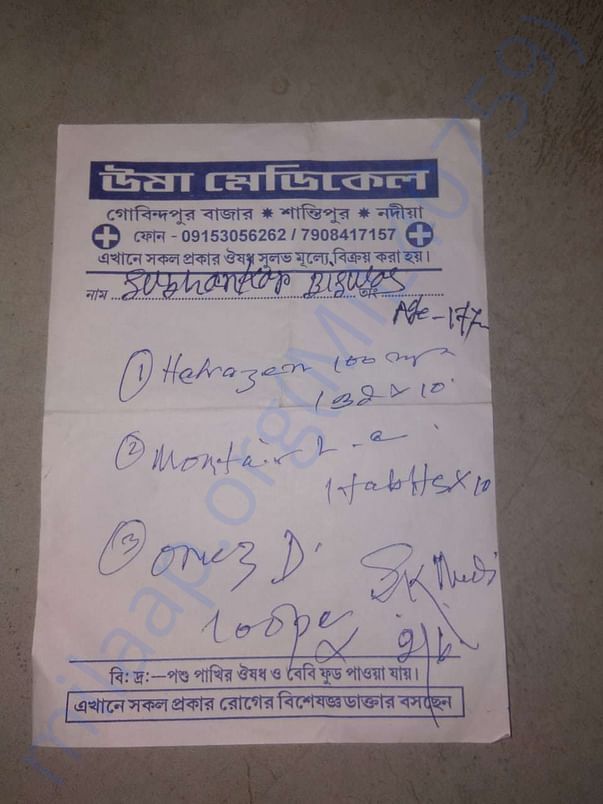 উষা মেডিকেল
গোবিন্দপুর বাজার * শান্তিপুর * নদীয়া
ফোন - 09153056262 / 7908417157
এখানে সকল প্রকার ঔষধ সুলভ মূল্যে বিক্রয় করা হয়।
নাম Subhankar Biswas অং
Age - 17
① Hetrazan 100 mg
② Montair L
1 tab HS x 10
③ Omez D
বি: দ্র:—পশু পাখির ঔষধ ও বেবি ফুড পাওয়া যায়।
এখানে সকল প্রকার রোগের বিশেষজ্ঞ ডাক্তার বসছেন
milaap.org